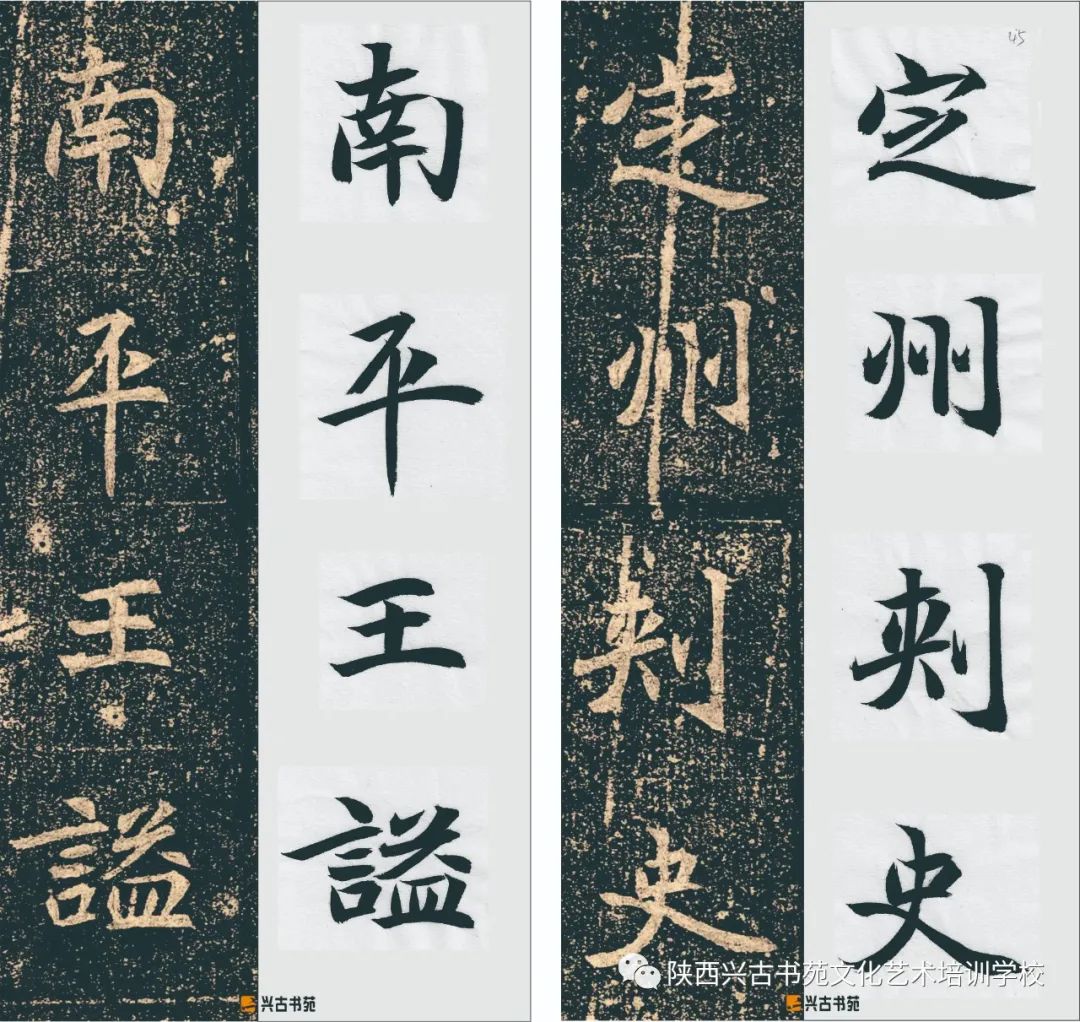 45
定州刾史
定州刾史
南平王謚
南平王謚
兴古书苑
兴古书苑
陕西兴古书苑文化艺术培训学校